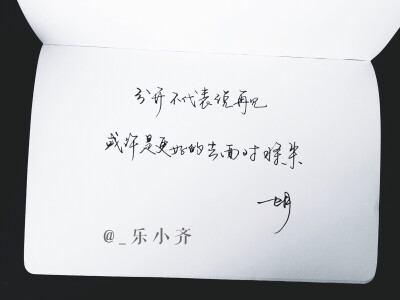 分开不代表说再见
或许是更好的去面对将来
@_乐小齐